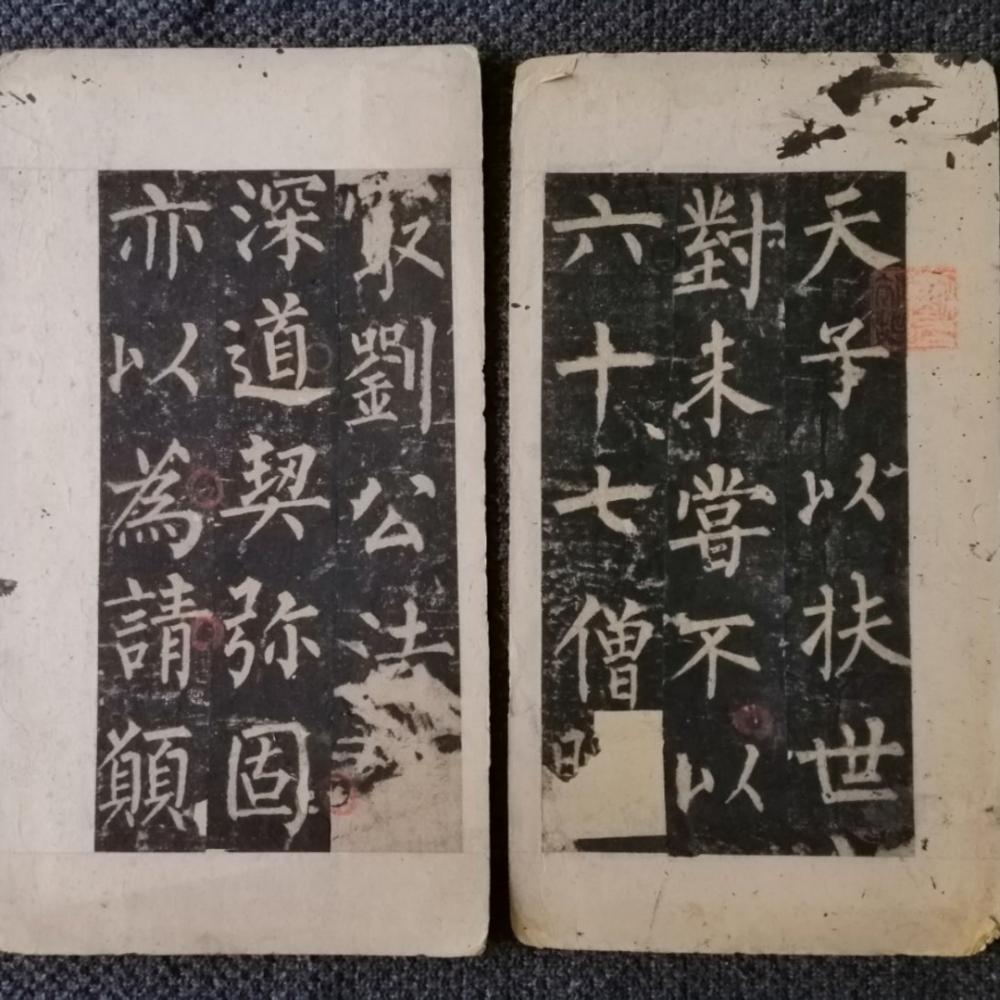 天子以扶世
對未嘗不以
六十七僧
劉公法
深道契弥固
亦以為請願